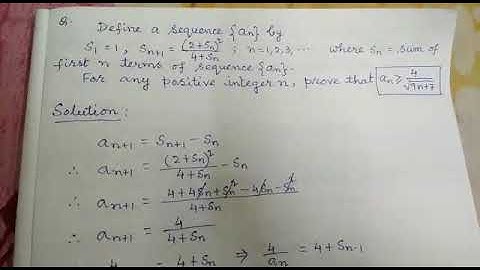 Q. Define a sequence {an} by
S1 = 1 , Sn+1 = (2+Sn)²/4+Sn ; n=1,2,3,... where Sn = sum of
first n terms of sequence {an}.
For any positive integer n, prove that an ≥ 4/√9n+7
Solution :
an+1 = Sn+1 - Sn
∴ an+1 = (2+Sn)²/4+Sn - Sn
∴ an+1 = 4+4Sn+Sn²-4Sn-Sn²/4+Sn
∴ an+1 = 4/4+Sn
4 = 4+Sn ⇒ 4/an = 4+Sn-1